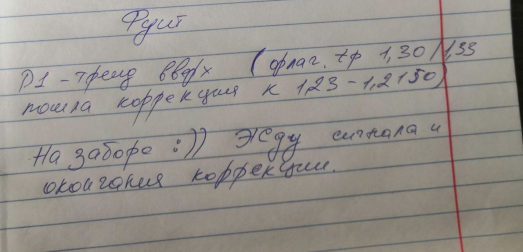 Фунт
D1 - тренд вверх (флаг. tp 1,30/1,33
пошла коррекция к 1,23-1,2150)
На заборе :)) Жду сигнала и
окончания коррекции.